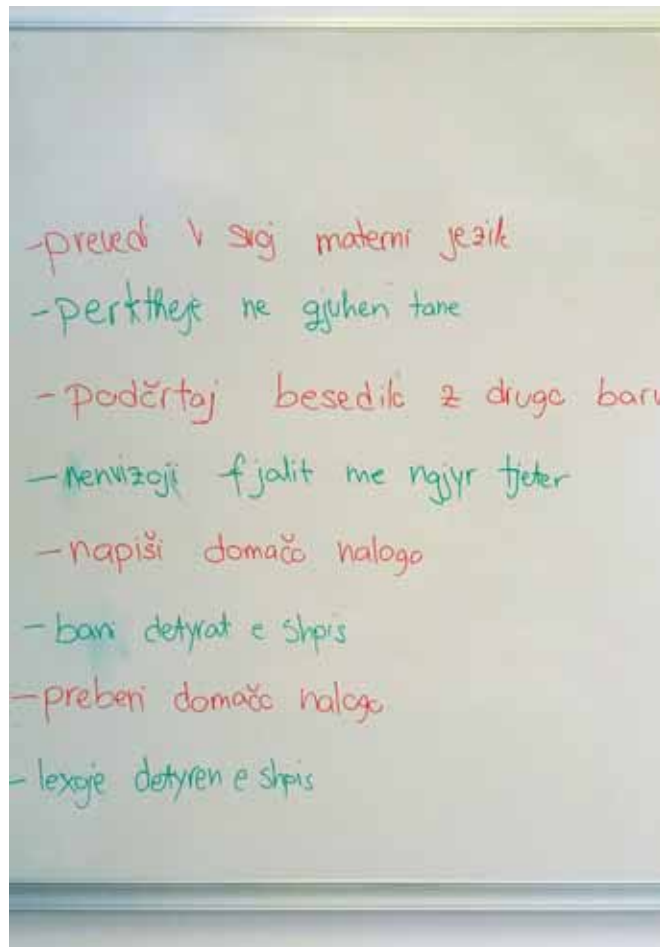 -prevedi v svoj materni jezik
-perktheje ne gjuhen tane
-podčrtaj besedilo z drugo barv
-nenvizoji fjalit me ngjyr tjeter
-napiši domačo nalogo
-bani detyrat e shpis
-preberi domačo nalogo
-lexoje detyren e shpis